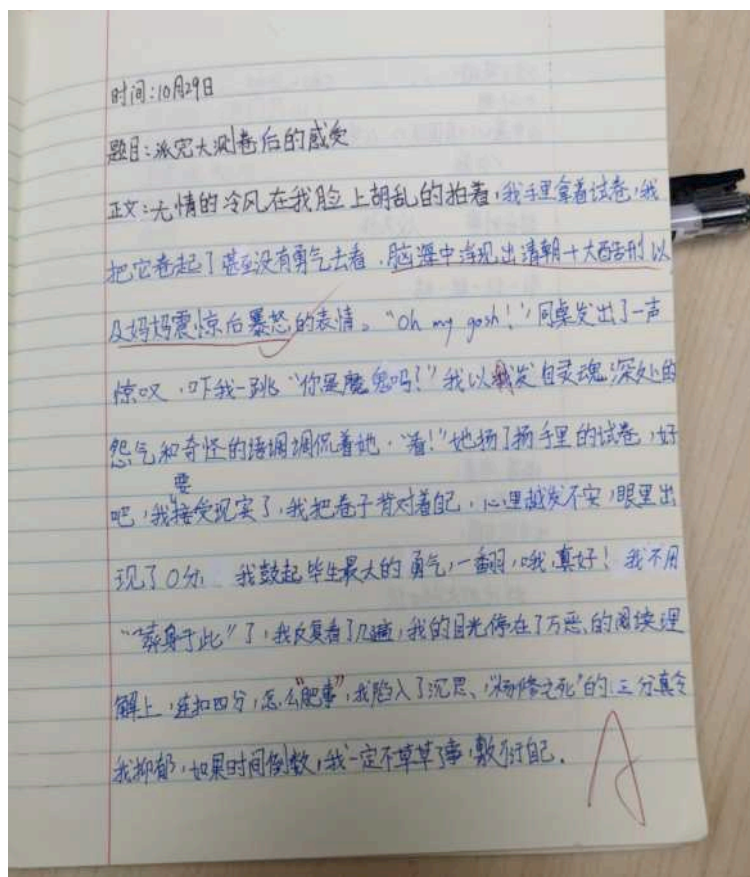 时间:10月29日
题目:派完大测卷后的感受
正文:无情的冷风在我脸上胡乱的拍着,我手里拿着试卷,我
把它卷起了甚至没有勇气去看,脑海中涌现出清朝十大酷刑以
及妈妈震惊后暴怒的表情。“Oh my gosh!”同桌发出了一声
惊叹,吓我一跳“你是魔鬼吗!”我以发自灵魂深处的
怨气和奇怪的语调调侃着她,“看!”她扬了扬手里的试卷,好
吧,我要接受现实了,我把卷子背对着自己,心里越发不安,眼里出
现了0分 我鼓起毕生最大的勇气,一翻,哦,真好!我不用
“葬身于此”了,我反复看了几遍,我的目光停在了万恶的阅读理
解上,连扣四分,怎么“肥事”,我陷入了沉思、“杨修之死”的三分真令
我抑郁,如果时间倒数,我一定不草草了事,敷衍自己.
A